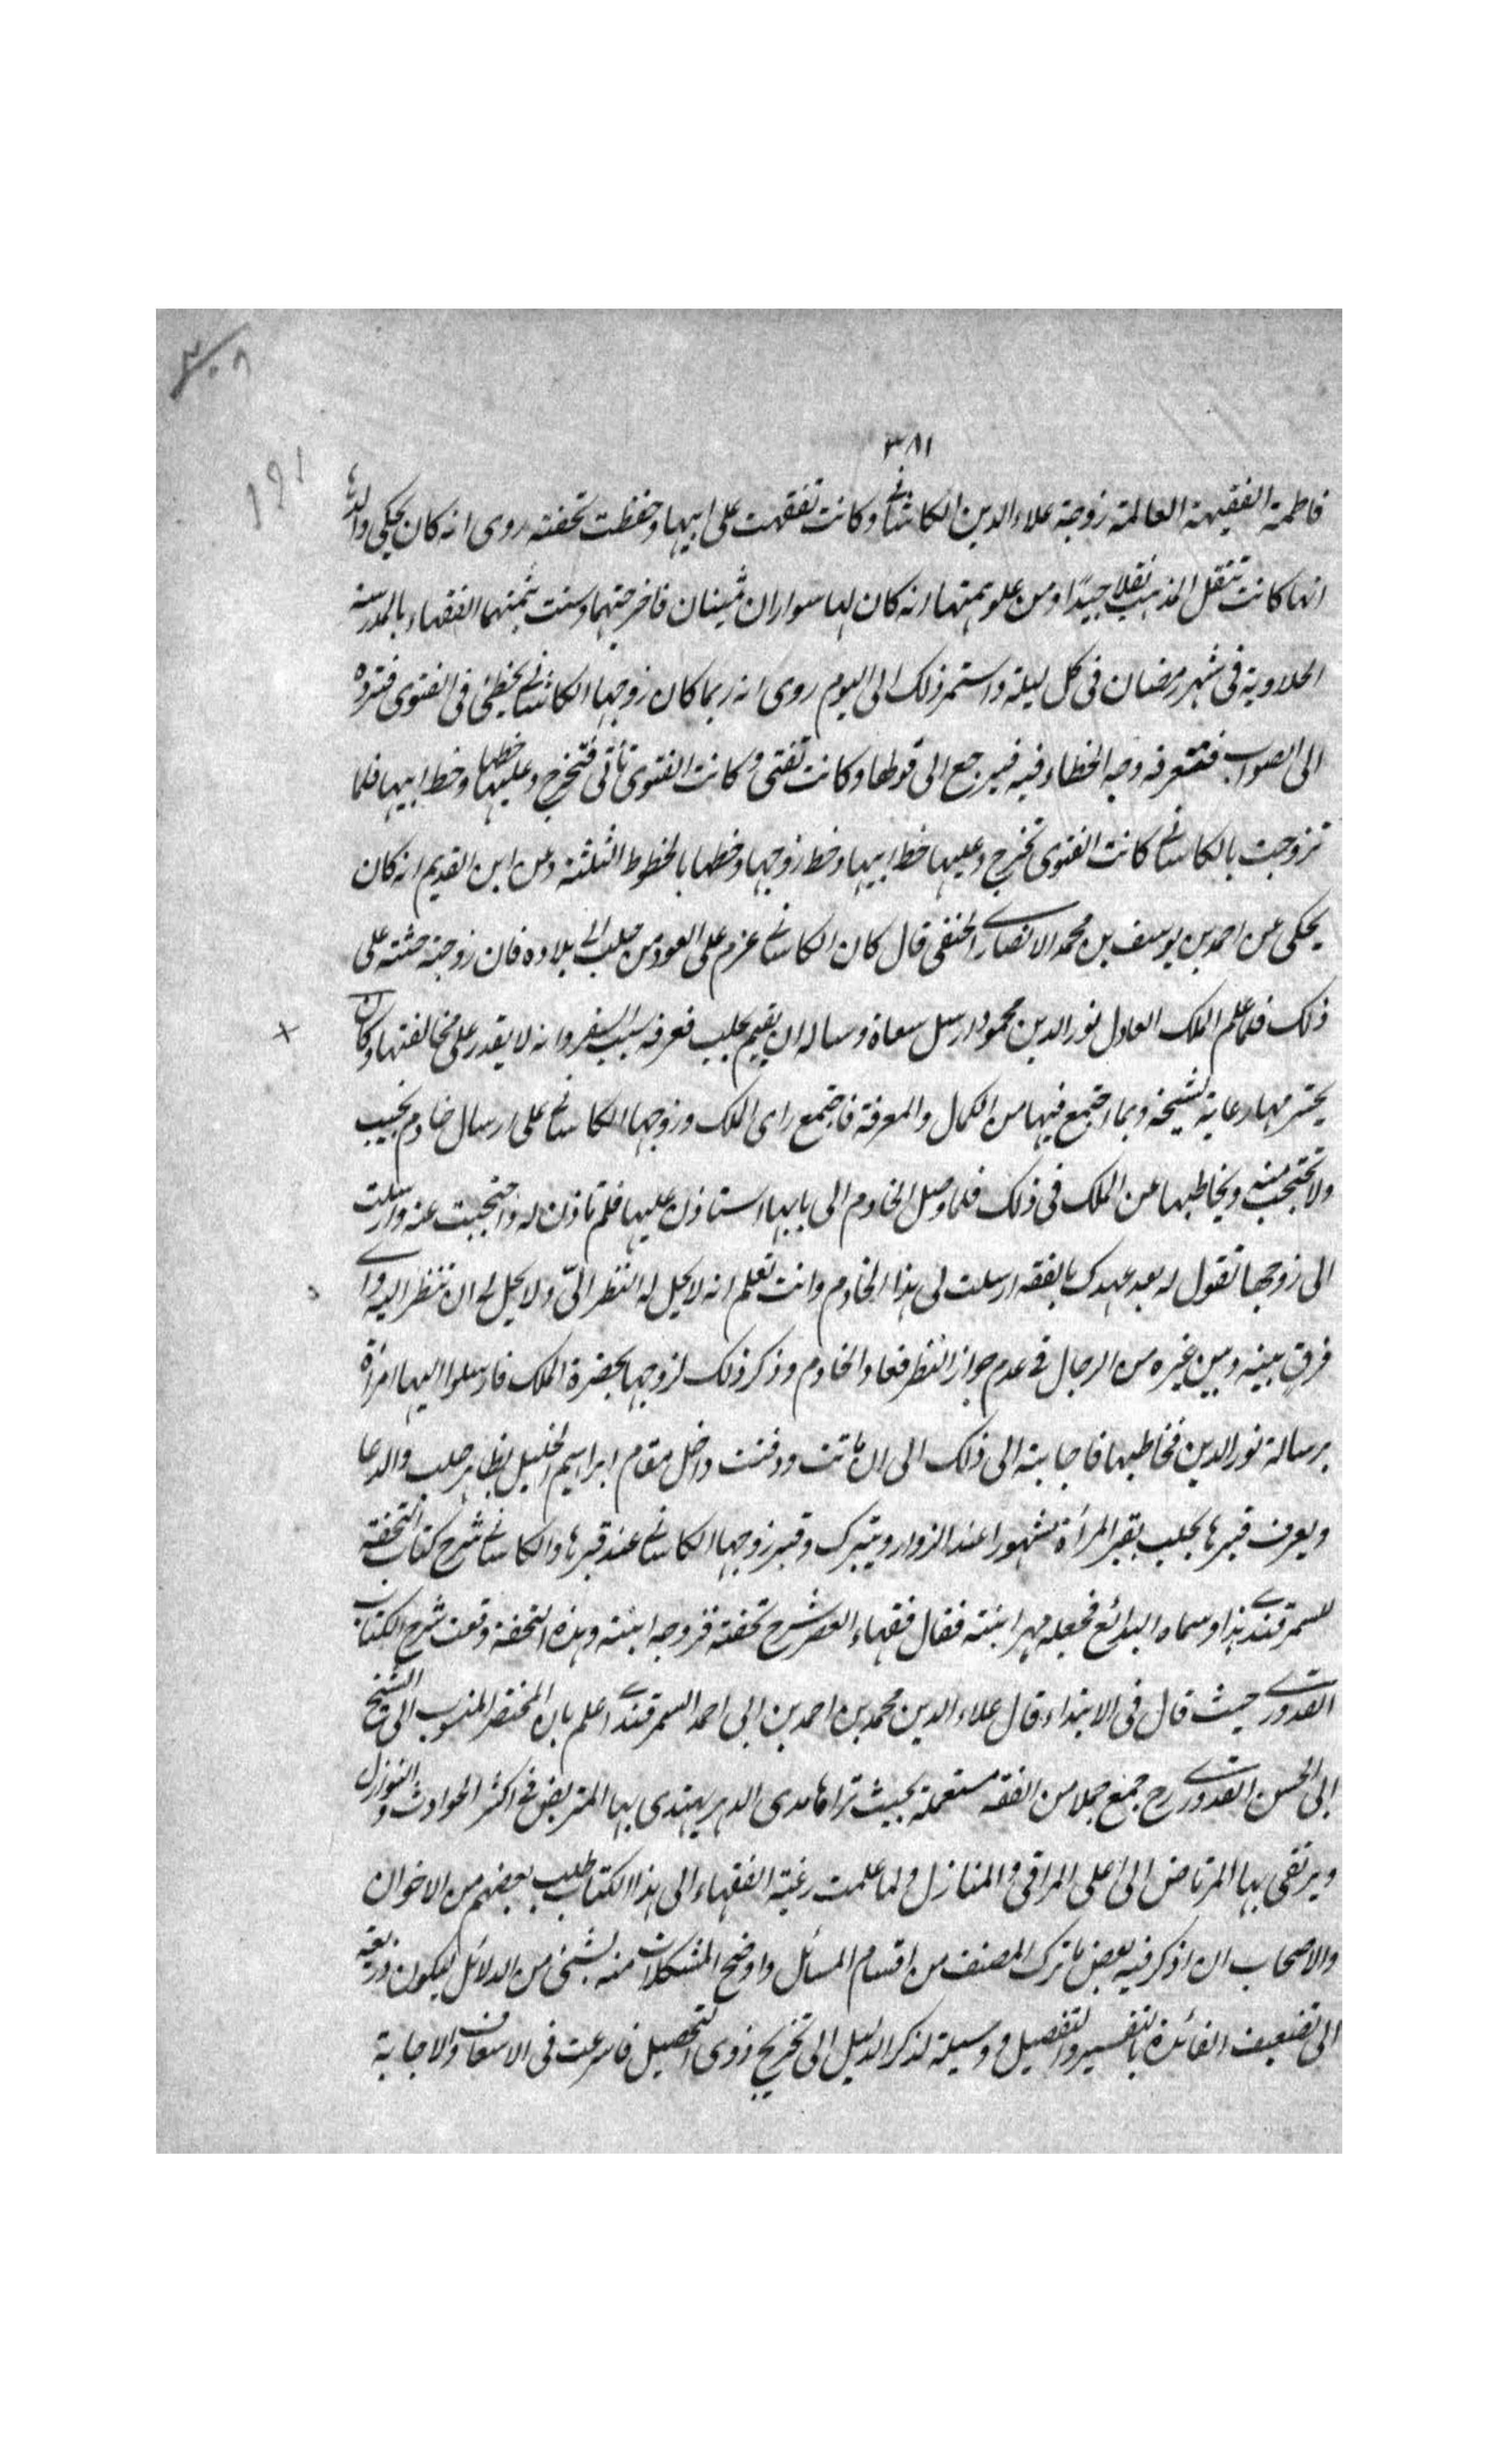 ٣٠٨
٣٨١
١٩١
فاطمة الفقيهة العالمة زوجة علاء الدين الكاشانى وكانت تفقهت على ابيها وحفظت تحفته روى انه كان يحكى والده
انها كانت تنقل المذهب نقلا جيدًا ومن علو همتها انه كان لها سواران ثمينان فاخرجتهما وسنت بثمنهما الفقهاء بالمدرسة
الحلاوية فى شهر رمضان فى كل ليلة واستمر ذلك الى اليوم روى انه ربما كان زوجها الكاشانى يخطئ فى الفتوى فترده
الى الصواب فتعرفه وجه الخطاء فيه فيرجع الى قولها وكانت تفتى وكانت الفتوى تأتى فتخرج وعليها خطها وخط ابيها فلما
تزوجت بالكاسانى كانت الفتوى تخرج وعليها خط ابيها وخط زوجها وخطها بالخطوط الثلثة وعن ابن القديم انه كان
يحكى عن احمد بن يوسف بن محمد الانصارى الحنفى قال كان الكاسانى عزم على العود من حلب الى بلاده فان زوجته حثته على
ذلك فلما علم الملك العادل نور الدين محمود ارسل سعاة وساله ان يقيم بحلب فعرفه سبب السفر وانه لا يقدر على مخالفتها وكان
يحترمها رعاية لشيخه وبما اجتمع فيها من الكمال والمعرفة فاجتمع راى الملك وزوجها الكاسانى على ارسال خادم بحيث
ولا تحتجب منه ويخاطبها عن الملك فى ذلك فلما وصل الخادم الى بابها استاذن عليها فلم تاذن له واحتجبت عنه وارسلت
الى زوجها تقول له بعد عهدك بالفقه ارسلت لى هذا الخادم وانت تعلم انه لا يحل له النظر الىّ ولا يحل لى ان تنظر اليه واى
فرق بينه وبين غيره من الرجال فى عدم جواز النظر فعاد الخادم وذكر ذلك لزوجها بحضرة الملك فارسلوا اليها امرأة
برسالة نور الدين فخاطبها فاجابته الى ذلك الى ان ماتت ودفنت داخل مقام ابراهيم الخليل بظاهر حلب والدعا
ويعرف قبرها بحلب بقبر المرأة مشهورا عند الزوار ويتبرك وقبر زوجها الكاسانى عند قبرها والكاسانى شرح كتاب التحفة
للسمرقندى هذا وسماه البدائع فجعله مهر ابنته فقال فقهاء العصر شرح تحفته فزوجه ابنته وهذه التحفة وقعت شرح الكتاب
القدورى حيث قال فى الابتداء قال علاء الدين محمد بن احمد بن ابى احمد السمرقندى اعلم بان المختصر المنسوب الى الشيخ
ابى الحسن القدورى رح جمع جملا من الفقه مستعملة بحيث تراها مدى الدهر يهتدى بها المتريض فى اكثر الحوادث والنوازل
ويرتقى بها المرتاض الى اعلى المراقى والمنازل ولما علمت رغبة الفقهاء الى هذا الكتاب طلب بعضهم من الاخوان
والاصحاب ان اذكر فيه بعض ما ترك المصنف من اقسام المسائل واوضح المشكلات منه بشئ من الدلائل ليكون ذريعة
الى تضعيف الفائدة بالتفسير والتفصيل ووسيلة لذكر الدليل الى تخريج ذوى التحصيل فاسرعت فى الاسعاف والاجابة